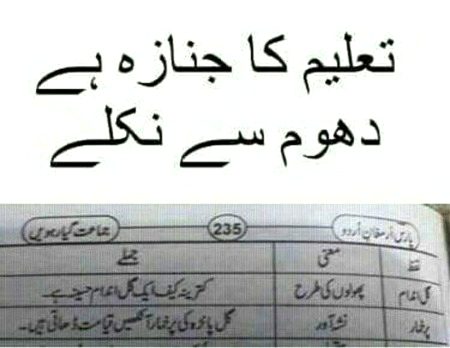 تعلیم کا جنازہ ہے
دھوم سے نکلے
پارس ارمغانِ اُردو 235 جماعت گیارہویں
لفظ معنی جملے
گل اندام پھولوں کی طرح کترینہ کیف ایک گل اندام حسینہ ہے۔
پرخمار نشہ آور گل پانڑہ کی پرخمار آنکھیں قیامت ڈھاتی ہیں۔